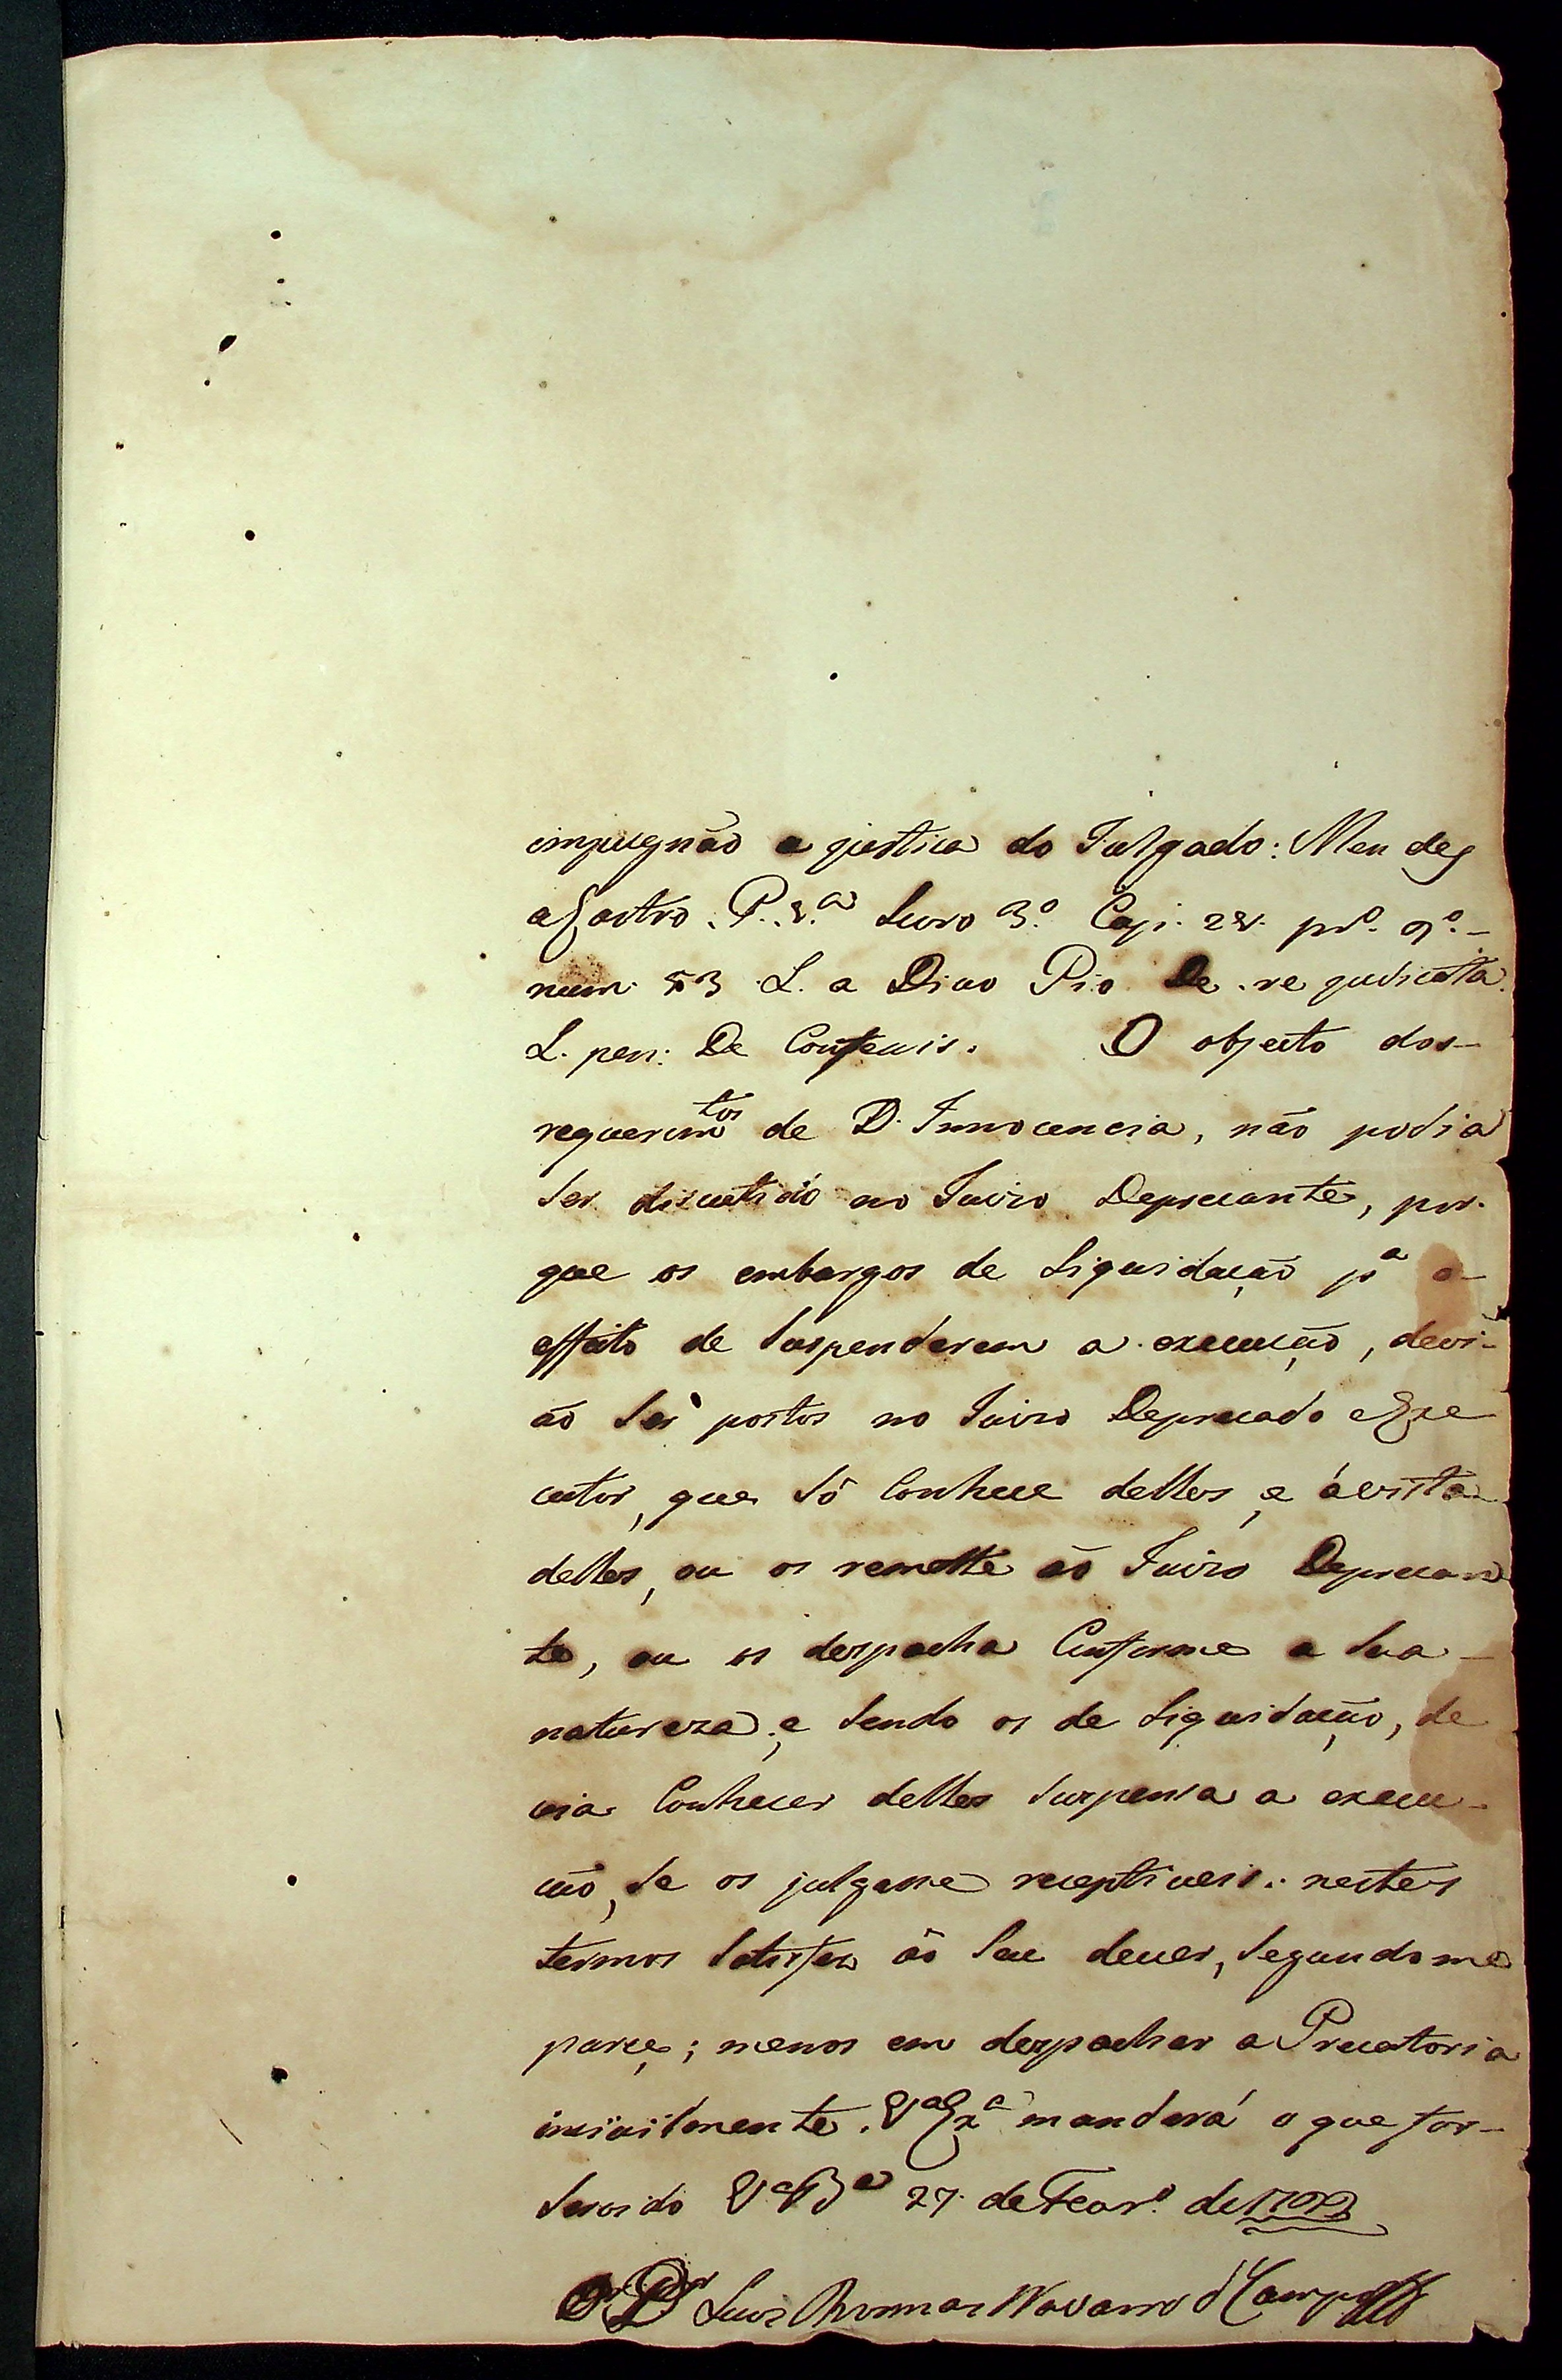 impugnão a justica do Julgado: Mendes
a Castro. P. 2.ª Livro 3.º Capi. 21. pr.º 9.º -
num. 53 L. a Divo Pio De re judicata.
L. pen: De Confessis. O objecto dos-
requerim.tos de D. Innocencia, não podia
ser discutido no Juizo Deprecante, por-
que os embargos de Liquidação p.ª o-
effeito de suspenderem a execução, devi-
ão ser postos no Juizo Deprecado e Exe
cutor, que só conhece delles, e á vista
delles, ou os remette ao Juizo Deprecan
te, ou os despacha conforme a sua -
natureza; e sendo os de Liquidação, de
via conhecer delles suspensa a execu-
ção, se os julgasse receptiveis: nestes
termos satisfez áo seu dever, segundo me
parece; menos em despachar a Precatoria
incivilmente. V.ª Ex.ª mandará o que for-
servido V.ª B.ª 27 de Fevr.º de
O D.r Luis Thomas Navarro d' Campos